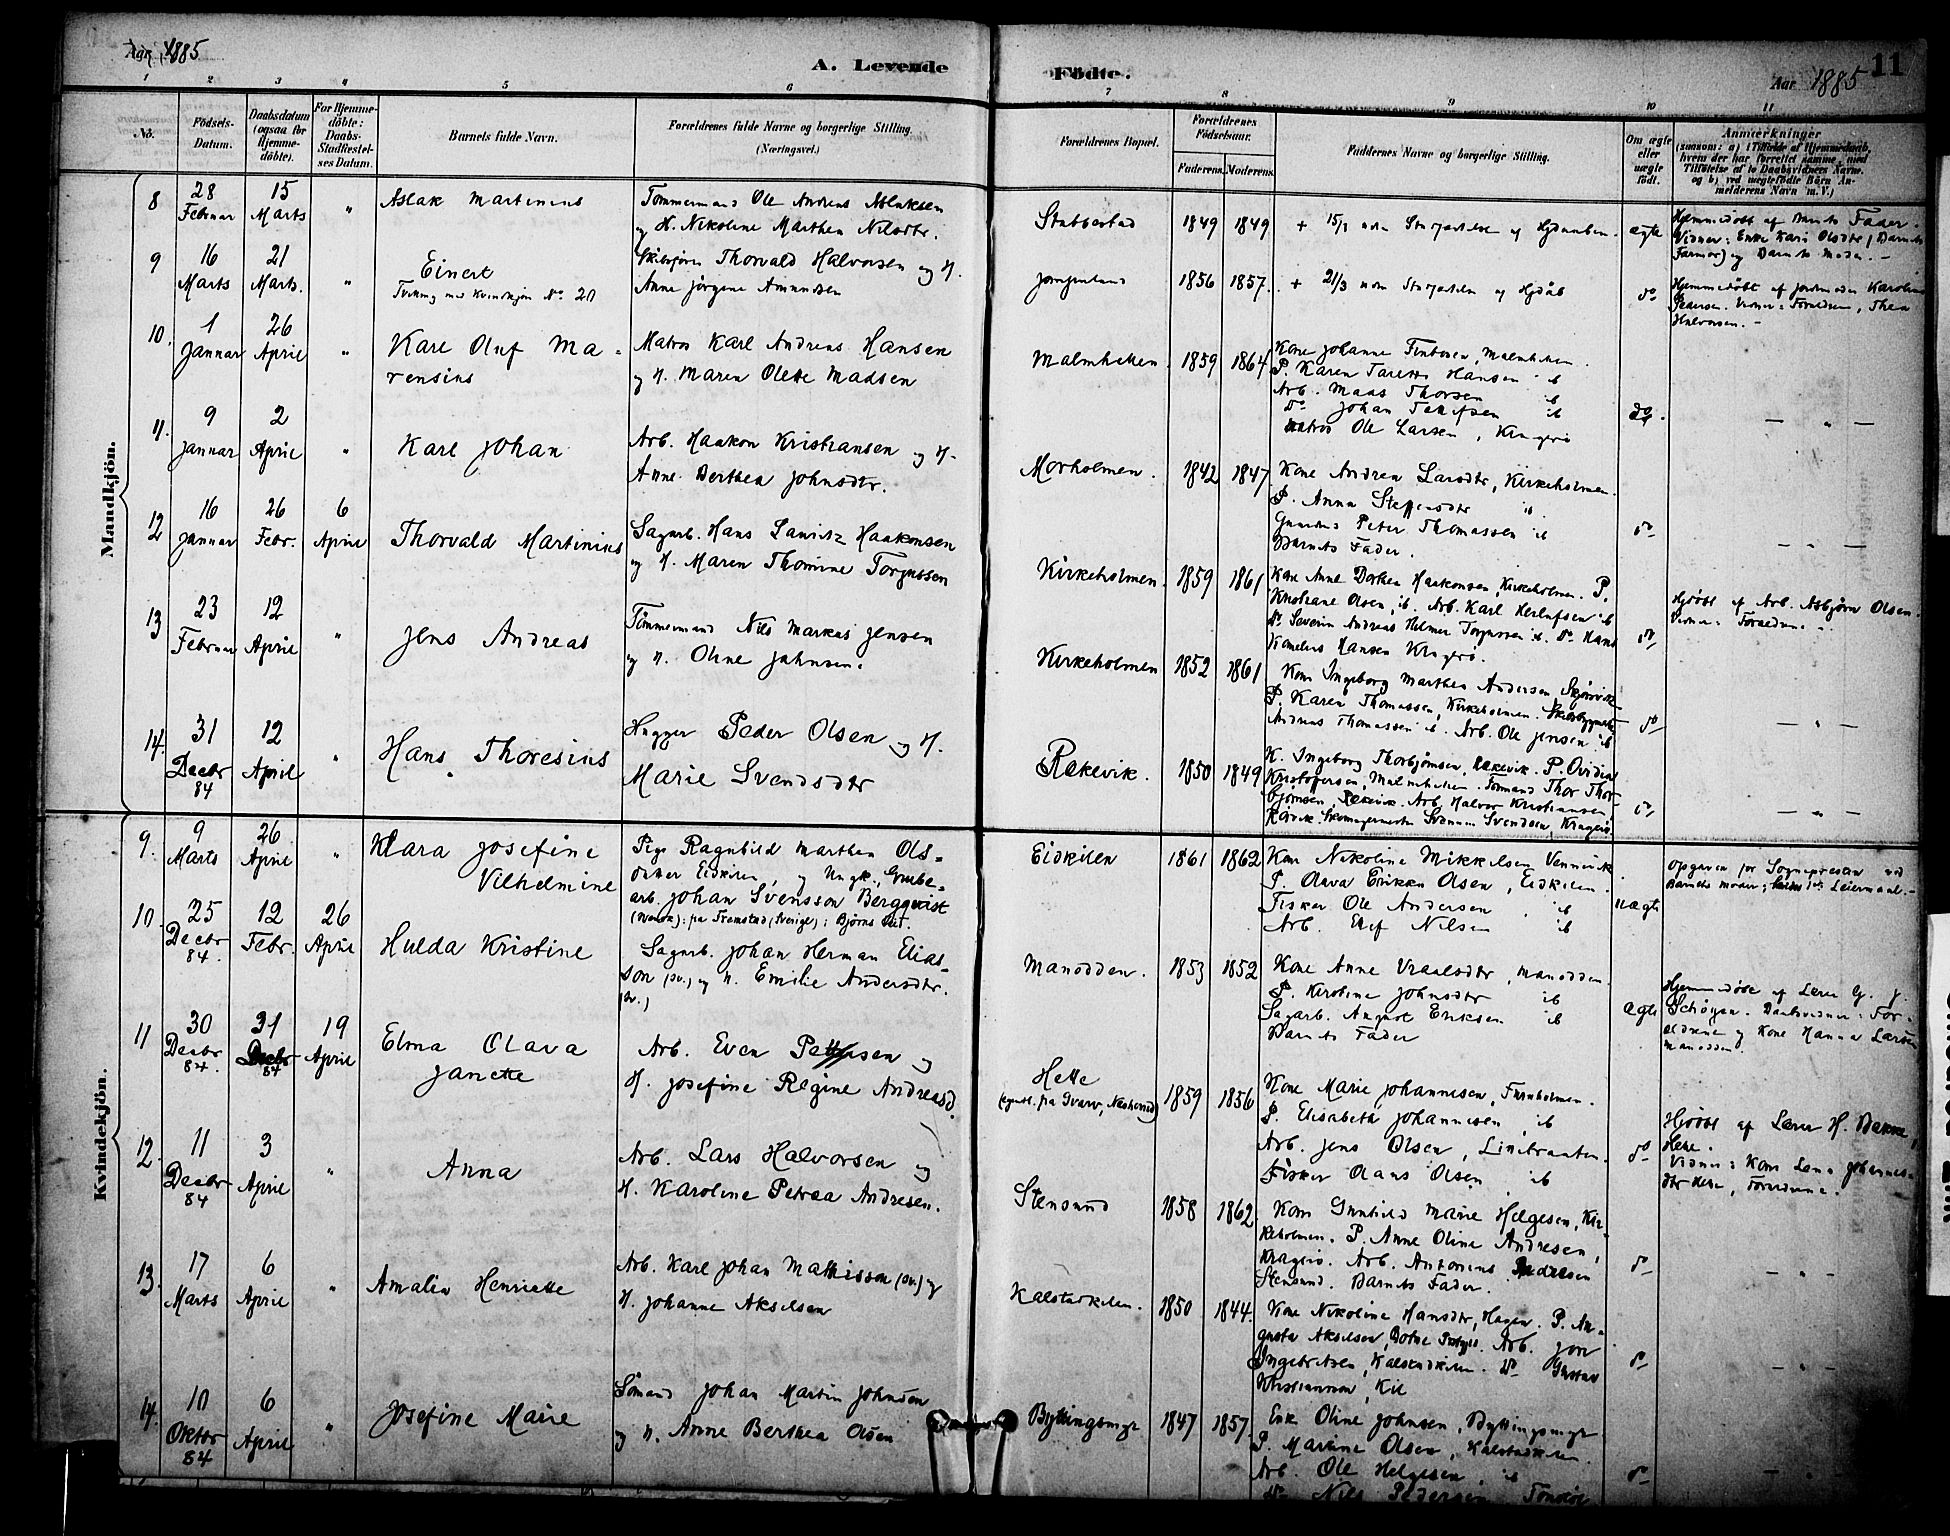 Aar 1885
A. Levende
Födte.
Aar 1885
11
1 2 3 4 5 6 7 8 9 10 11
No.
Födsels-
Datum.
Daabsdatum
(ogsaa for
Hjemme-
döbte).
For Hjemme-
döbte:
Daabs-
Stadfæstel-
ses Datum.
Barnets fulde Navn.
Forældrenes fulde Navne og borgerlige Stilling.
(Næringsvei.)
Forældrenes Bopæl.
Forældrenes
Födselsaar.
Faderens. Moderens.
Faddernes Navne og borgerlige Stilling.
Om ægte
eller
uægte
födt.
Anmærkninger
(saasom: a) i Tilfælde af Hjemmedaab,
hvem der har forrettet samme, med
Tilföielse af to Daabsvidners Navne.
og b) ved uægtefödte Börn An-
melderens Navn m. V.)
Mandkjön.
8
28
Februar
15
Marts
"
Aslak Martinius
Tömmermand Ole Andreas Aslaksen
og H. Nikoline Marthea Nilsdtr.
Stabbestad
1849
1849
ægte
Hjemmedöbt af Barnets Fader.
Vidner: Enke Kari Olsdtr (Barnets
Farmor) og Barnets Moder. -
9
16
Marts
21
Marts.
"
Einert
Tvilling med Kvindekjön No. 20
Thorvald Halvorsen og H.
Anne Jörgine Amundsen
1856
1857.
do
Hjemmedöbt af Jordmoder Karoline
Pedersen. Vidner: Forældrene, Thea
Halvorsen. -
10.
1
Januar
26
April
"
Karl Oluf Ma-
rensius
Matros Karl Andreas Hansen
og H. Maren Olette Madsen
Malmhellen.
1859
1864
Kone Johanne Malmhellen.
P. Karen Hansen ib
Arb. Maas Thorsen ib
do Johan ib
Matros Ole Larsen, Kragerö
do.
— " —
11.
9
Januar
2
April
"
Karl Johan
Arb. Haakon Kristiansen og H.
Anne Berthea Johnsdtr.
Morholmen.
1842
1847
Kone Andrea Larsdtr, Kirkeholmen.
P. Anna Steffensdtr ib.
Peter Thomassen ib
Barnets Fader.
do
— " —
12
16
Januar
26
Febr.
6
April
Thorvald Martinius
Sagarb. Hans Lauritz Haakonsen
og H. Maren Thomine Torjussen
Kirkeholmen.
1859
1861
Kone Anne Dorthea Haakonsen, Kirkeholmen. P.
Kristiane Olsen, ib. Arb. Karl Herlufsen ib
do Severin Andreas Helmer Torjussen ib. do Hans
Kornelius Hansen Kragerö.
do
Hjdöbt af Arb. Asbjörn Olsen.
Vidner: Forældrene.
13
23
Februar
12
April
"
Jens Andreas
Tömmermand Nils Markus Jensen
og H. Oline Jahnsen.
Kirkeholmen
1852
1861
Kone Ingeborg Marthea Andersen,
P. Karen Thomassen, Kirkeholmen.
Andreas Thomassen ib. Arb. Ole Jensen ib
do
— " —
14.
31
Decbr
84
12
April
"
Hans Thoresius
Hugger Peder Olsen og H.
Marie Svendsdtr
Rækevik.
1850
1849
K. Ingeborg Thorbjörnsen, Rækevik. P.
Kristoffersen, Malmhellen. Formand Thor Thor-
björnsen, Rækevik. Arb. Halvor Kristiansen,
Svendsen, Kragerö
do
— " —
Kvindekjön.
9.
9
Marts
26
April
"
Klara Josefine
Vilhelmine
Pige Ragnhild Marthea Ols-
datter Eidkilen, og Ungk., Grube-
arb. Johan Svensson Bergqvist
(Svensk): fra (Sverige)
Eidkilen
1861
1862
Kone Nikoline Mikkelsen
P. Olava Erikka Olsen, Eidkilen.
Fisker Ole Andersen ib
Arb. Nilsen ib
uægte
Opgaven for Sognepresten ved
Barnets Moder; Leiermaal. -
10.
25
Decbr
84.
12
Febr.
26
April
Hulda Kristine
Sagarb. Johan Herman Elias-
son (sv.) og H. Emilie Andersdtr.
(sv.)
Manodden.
1853
1852
Kone Anne Manodden
P. Karoline Johnsdtr ib
Sagarb. August Eriksen ib
Barnets Fader
Ægte
Hjemmedöbt af Lærer G. J.
Schöyen. Daabsvidner: For-
ældrene og Kone Hanna Larsen
Manodden.
11
30
Decbr
84.
31
Decbr
84
19
April
Elma Olava
Janette
Arb. Even Pettersen og
H. Josefine Regine Andreasd.
Helle
1859
1856
Kone Marie Johannesen, Furuholmen.
P. Elisabeth Johannesen, ib
Arb. Jens Olsen,
Fisker Olaus Olsen ib
do
Hjdöbt af Lærer H. Bakke,
Helle.
Vidner: Kone Lena Johannes-
dtr Helle, Forældrene.
12.
11
Decbr
84
3
April
"
Anna
Arb. Lars Halvorsen og
H. Karoline Petrea Andresen.
Stensund
1858
1862
Kone Gunhild Marie Helgesen, Kir-
keholmen. P. Anne Oline Andresen,
Kragerö. Arb. Antonius Andresen
Stensund. Barnets Fader.
do
— " —
13.
17
Marts
6
April
"
Amalia Henriette
Arb. Karl Johan Mathisson (sv.) og
H. Johanne Akselsen
Kalstadkilen.
1850
1844.
Kone Nikoline Hansdtr, Hagen. P. Au-
gusta Akselsen, Arb. Jon
Ingebretsen, Kalstadkilen. do Gustav
Kristiansen, Kil
do
— " —
14.
10
Oktbr
84
6
April
"
Josefine Marie
Sömand Johan Martin Johnsen
og H. Anne Berthea Olsen
Byttingsmyr
1847
1857.
Enke Oline Johnsen, Byttingsmyr
P. Martine Olsen, Kalstadkilen.
Arb. Ole Helgesen, ib
do Nils Pedersen,
do
— "